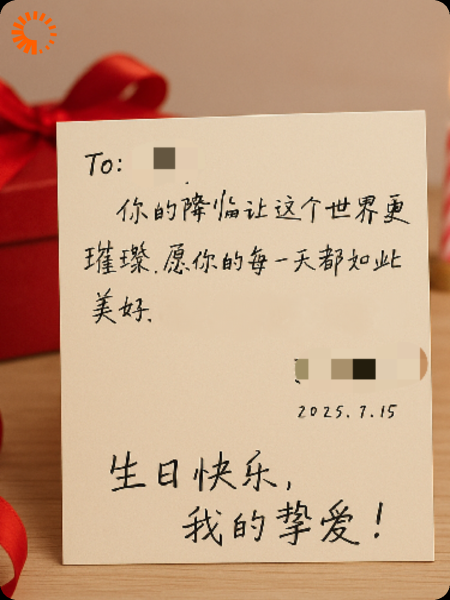 To:
你的降临让这个世界更
璀璨.愿你的每一天都如此
美好.
2025.7.15
生日快乐,
我的挚爱!